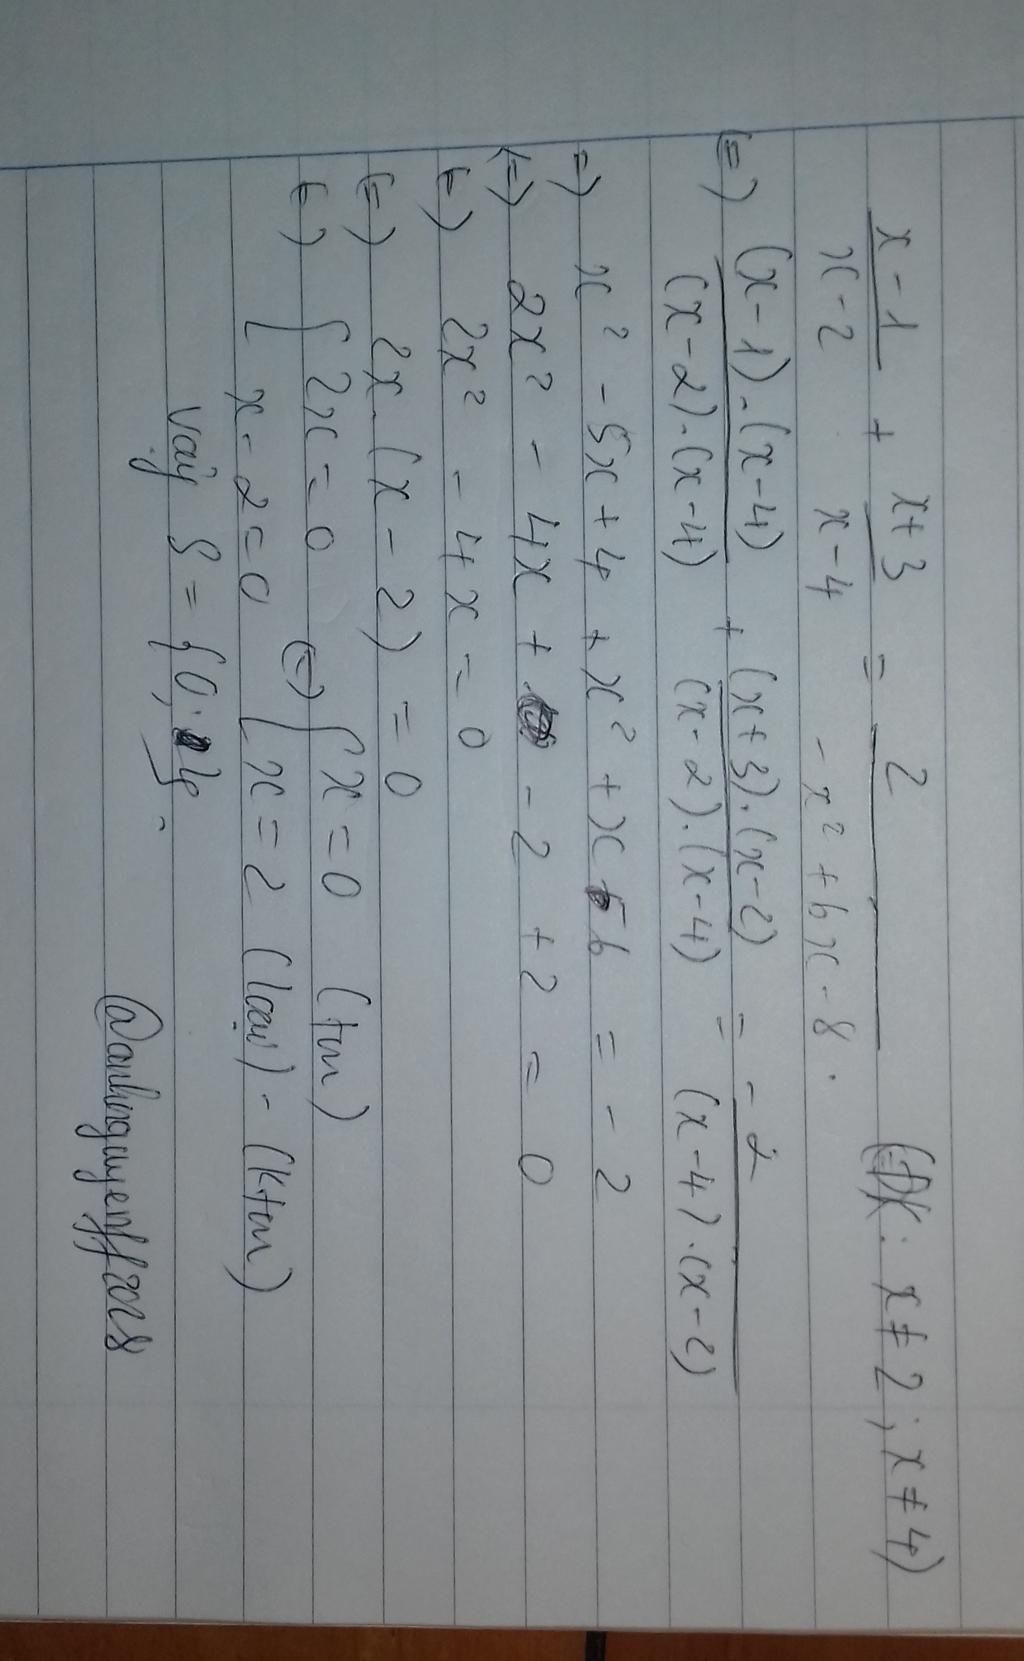 x - 1 / x - 2 + x + 3 / x - 4 = 2 / - x² + 6x - 8 . (ĐK: x ≠ 2 ; x ≠ 4)
(=) (x - 1) . (x - 4) / (x - 2) . (x - 4) + (x + 3) . (x - 2) / (x - 2) . (x - 4) = - 2 / (x - 4) . (x - 2)
=) x² - 5x + 4 + x² + x - 6 = - 2
(=) 2x² - 4x + - 2 + 2 = 0
(=) 2x² - 4x = 0
(=) 2x . (x - 2) = 0
(=) [ 2x = 0 (=) [ x = 0 (tm)
[ x - 2 = 0 [ x = 2 (loại) - (ktm)
Vậy S = { 0 }
@danhnguyenff2028